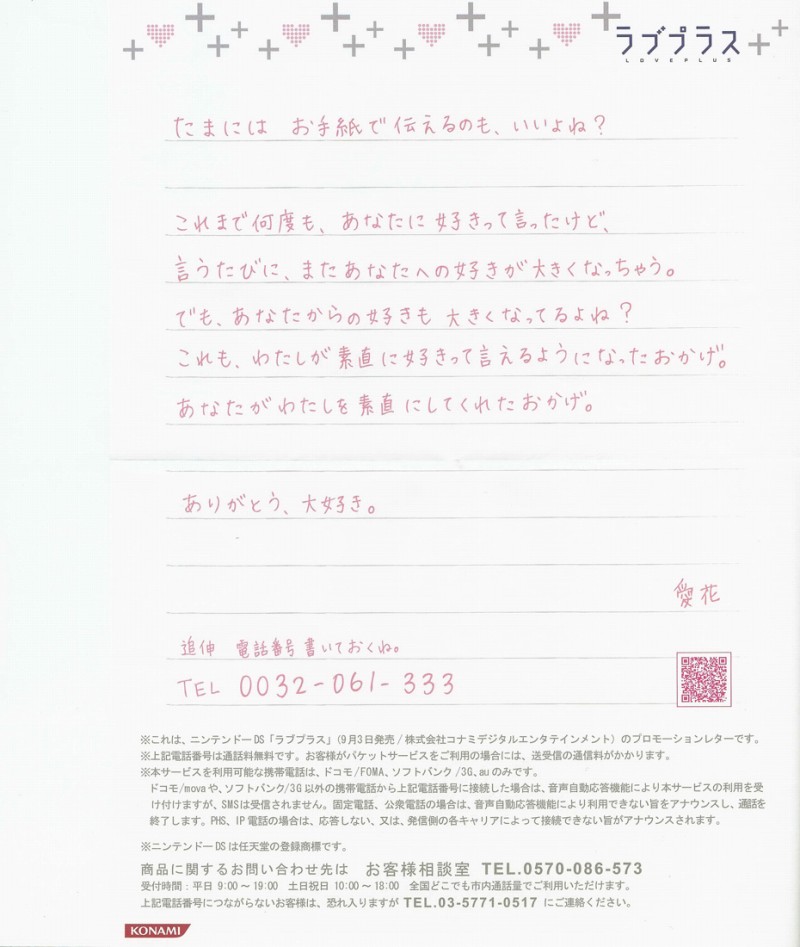 ラブプラス
LOVEPLUS
たまには お手紙で伝えるのも、いいよね？
これまで何度も、あなたに好きって言ったけど、
言うたびに、またあなたへの好きが大きくなっちゃう。
でも、あなたからの好きも大きくなってるよね？
これも、わたしが素直に好きって言えるようになったおかげ。
あなたがわたしを素直にしてくれたおかげ。
ありがとう、大好き。
愛花
追伸 電話番号書いておくね。
TEL 0032-061-333
※これは、ニンテンドーDS「ラブプラス」(9月3日発売/株式会社コナミデジタルエンタテインメント)のプロモーションレターです。
※上記電話番号は通話料無料です。お客様がパケットサービスをご利用の場合には、送受信の通信料がかかります。
※本サービスを利用可能な携帯電話は、ドコモ/FOMA、ソフトバンク/3G、auのみです。
ドコモ/movaや、ソフトバンク/3G以外の携帯電話から上記電話番号に接続した場合は、音声自動応答機能により本サービスの利用を受
け付けますが、SMSは受信されません。固定電話、公衆電話の場合は、音声自動応答機能により利用できない旨をアナウンスし、通話を
終了します。PHS、IP電話の場合は、応答しない、又は、発信側の各キャリアによって接続できない旨がアナウンスされます。
※ニンテンドーDSは任天堂の登録商標です。
商品に関するお問い合わせ先は お客様相談室 TEL.0570-086-573
受付時間：平日 9:00～19:00 土日祝日 10:00～18:00 全国どこでも市内通話量でご利用いただけます。
上記電話番号につながらないお客様は、恐れ入りますが TEL.03-5771-0517 にご連絡ください。
KONAMI